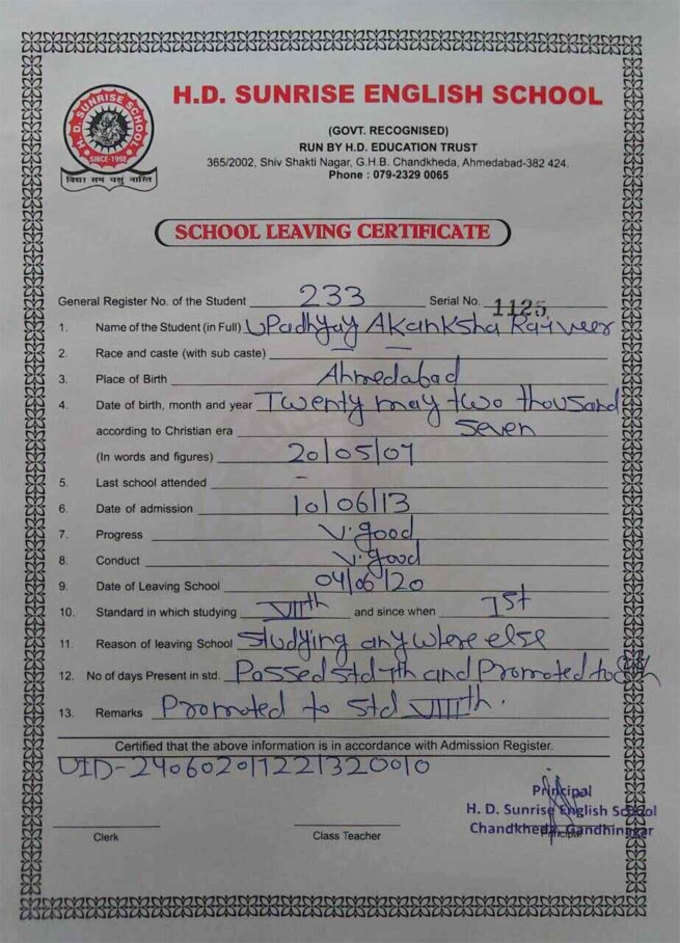 H.D. SUNRISE SCHOOL
SINCE-1992
विद्या सम वस्तु नास्ति
H.D. SUNRISE ENGLISH SCHOOL
(GOVT. RECOGNISED)
RUN BY H.D. EDUCATION TRUST
365/2002, Shiv Shakti Nagar, G.H.B. Chandkheda, Ahmedabad-382 424.
Phone : 079-2329 0065
SCHOOL LEAVING CERTIFICATE
General Register No. of the Student 233 Serial No. 1125
1. Name of the Student (in Full) UPadhyay Akanksha
2. Race and caste (with sub caste) —
3. Place of Birth Ahmedabad
4. Date of birth, month and year Twenty may two thousand
according to Christian era Seven
(In words and figures) 20/05/07
5. Last school attended –
6. Date of admission 10/06/13
7. Progress V.good
8. Conduct V.good
9. Date of Leaving School 04/06/20
10. Standard in which studying VIIth and since when 1st
11. Reason of leaving School Studying any where else
12. No of days Present in std. Passed Std 7th and Promoted to 8th
13. Remarks Promoted to Std VIIIth.
Certified that the above information is in accordance with Admission Register.
UID-240602017221320010
Principal
H. D. Sunrise English School
Chandkheda, Gandhinagar
Clerk Class Teacher Principal